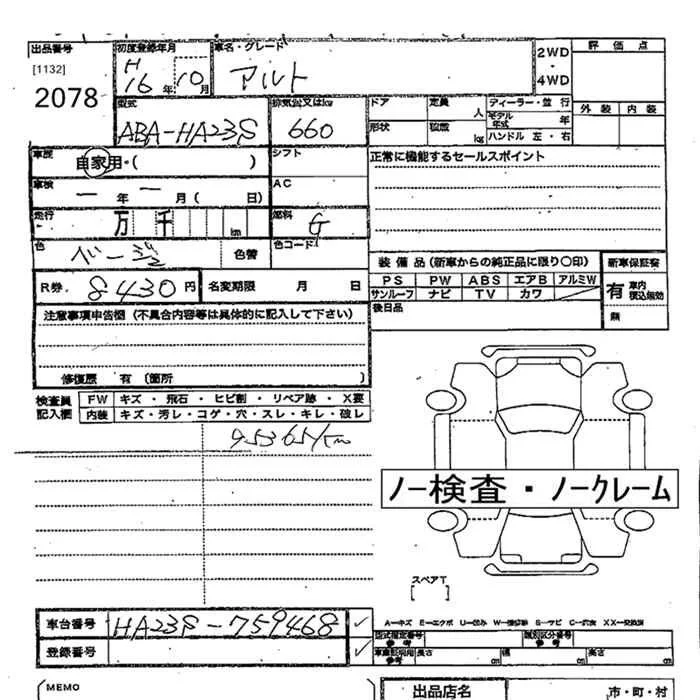 出品番号 初度登録年月 車名・グレード 2WD ・ 4WD 評価点
[1132] H16年10月 アルト
2078 外装 内装
型式 排気公又はkw ドア 定員 人 ディーラー・並行
ABA-HA23S 660 形状 積載 kg モデル年式 年 ハンドル 左・右
車歴 自家用・( ) シフト 正常に機能するセールスポイント
車検 一年一月( 日) AC
走行 万 千 km 燃料 G
色 ベージュ 色替 色コード 装備品(新車からの純正品に限り〇印) 新車保証書
PS PW ABS エアB アルミW 有 車内積込無効
R券. 8430円 名変期限 月 日 サンルーフ ナビ TV カワ
注意事項申告欄(不具合内容等は具体的に記入して下さい) 後日品 無
修復歴 有(箇所
検査員記入欄 FW キズ・飛石・ヒビ割・リペア跡・X要
内装 キズ・汚レ・コゲ・穴・スレ・キレ・破レ
95365km
ノー検査・ノークレーム
スペアT
[ ]
車台番号 HA23S-759468 ✓ A―キズ E―エクボ U―凹み W―補修跡 S―サビ C―腐食 XX―交換済
型式指定番号 参考 類別区分番号 参考
登録番号 ✓ 車庫証明用参考 長さ cm 幅 cm 高さ cm
MEMO 出品店名 市・町・村